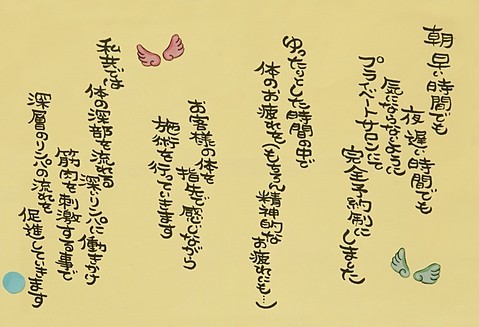 朝早い時間でも
夜遅い時間でも
気にならないように
プライベートサロンにて
完全予約制に
しました
ゆったりとした時間の中で
体のお疲れを(もちろん精神的な
お疲れにも…)
お客様の体を
指先で感じながら
施術を行っていきます
私共では
体の深部を流れる
深いリンパに働きかけ
筋肉を刺激する事で
深層のリンパの流れを
促進していきます